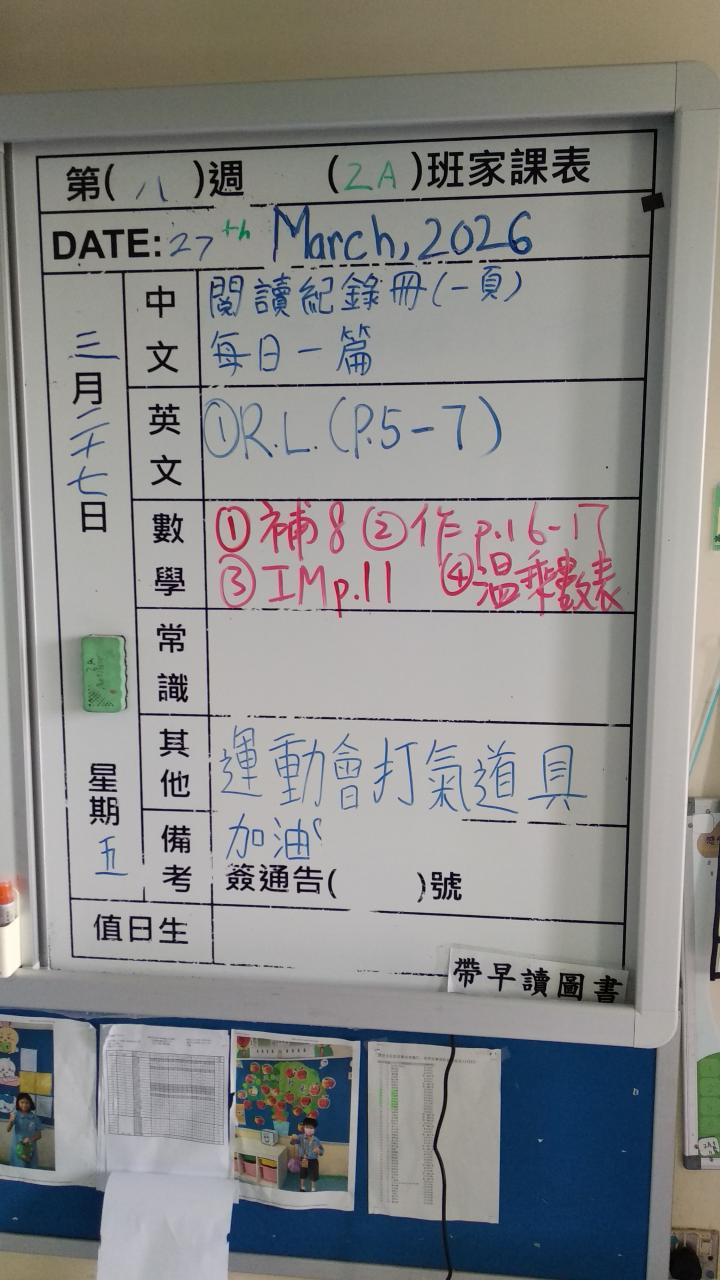 第(八)週 (2A)班家課表
DATE: 27th March, 2026
三月二十七日
星期五
中文
閱讀紀錄冊(一頁)
每日一篇
英文
①R.L.(P.5-7)
數學
①補8 ②作p.16-17
③IMp.11 ④溫乘數表
常識
其他
運動會打氣道具
備考
加油
簽通告( )號
值日生
帶早讀圖書